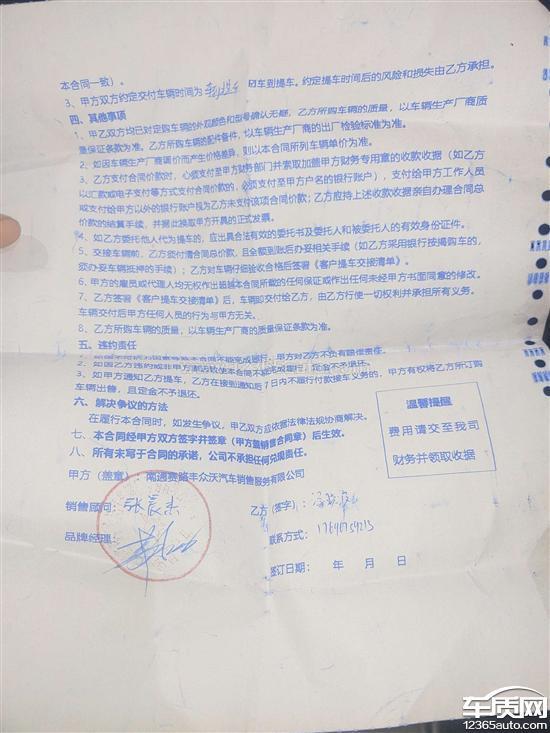 本合同一致）。
3、甲方双方约定交付车辆时间为 车到提车。约定提车时间后的风险和损失由乙方承担。
四、其他事项
1、甲乙双方均已对定购车辆的外观颜色和型号确认无疑，乙方所购车辆的质量，以车辆生产厂商质
量保证条款为准。乙方所购车辆的配件备件，以车辆生产厂商的出厂检验标准为准。
2、如因车辆生产厂商调价而产生价格差异，则以本合同所列车辆单价为准。
3、乙方支付合同价款时，必须支付至甲方财务部门并索取加盖甲方财务专用章的收款收据（如乙方
以汇款或电子支付等方式支付合同价款的，必须支付至甲方户名的银行账户），支付给甲方工作人员
或支付给甲方以外的银行账户视为乙方未支付该项合同价款；乙方应持上述收款收据亲自办理合同总
价款的结算手续，并据此换取甲方开具的正式发票。
4、如乙方委托他人代为提车的，应出具合法有效的委托书及委托人和被委托人的有效身份证件。
5、交接车辆前，乙方须付清合同总价款，且全额到账后办妥相关手续（如乙方采用银行按揭购车的，
须办妥车辆抵押的手续）；乙方对车辆仔细验收合格后签署《客户提车交接清单》。
6、甲方的雇员或代理人均无权作出超越本合同所载的任何保证或作出任何未经甲方书面同意的修改。
7、乙方签署《客户提车交接清单》后，车辆即交付给乙方，由乙方行使一切权利并承担所有义务。
车辆交付后甲方任何人员的行为与甲方无关。
8、乙方所购车辆的质量，以车辆生产厂商的质量保证条款为准。
五、违约责任
2、如因乙方违约或非甲方原因致使本合同不能完成履行，定金不予退还。
3、如甲方通知乙方提车，乙方在接到通知后7日内不履行付款接车义务的，甲方有权将乙方所订购
车辆出售，且定金不予退还。
六、解决争议的方法
在履行本合同时，如发生争议，甲乙双方应依据法律法规协商解决。
七、本合同经甲方双方签字并签章（甲方盖销售合同章）后生效。
八、所有未写于合同的承诺，公司不承担任何兑现责任。
温馨提醒
费用请交至我司
财务并领取收据
甲方（盖章）：南通赛路丰众沃汽车销售服务有限公司
销售顾问：张晨杰
乙方（签字）：
品牌经理：
联系方式：
签订日期： 年 月 日
车质网
12365auto.com